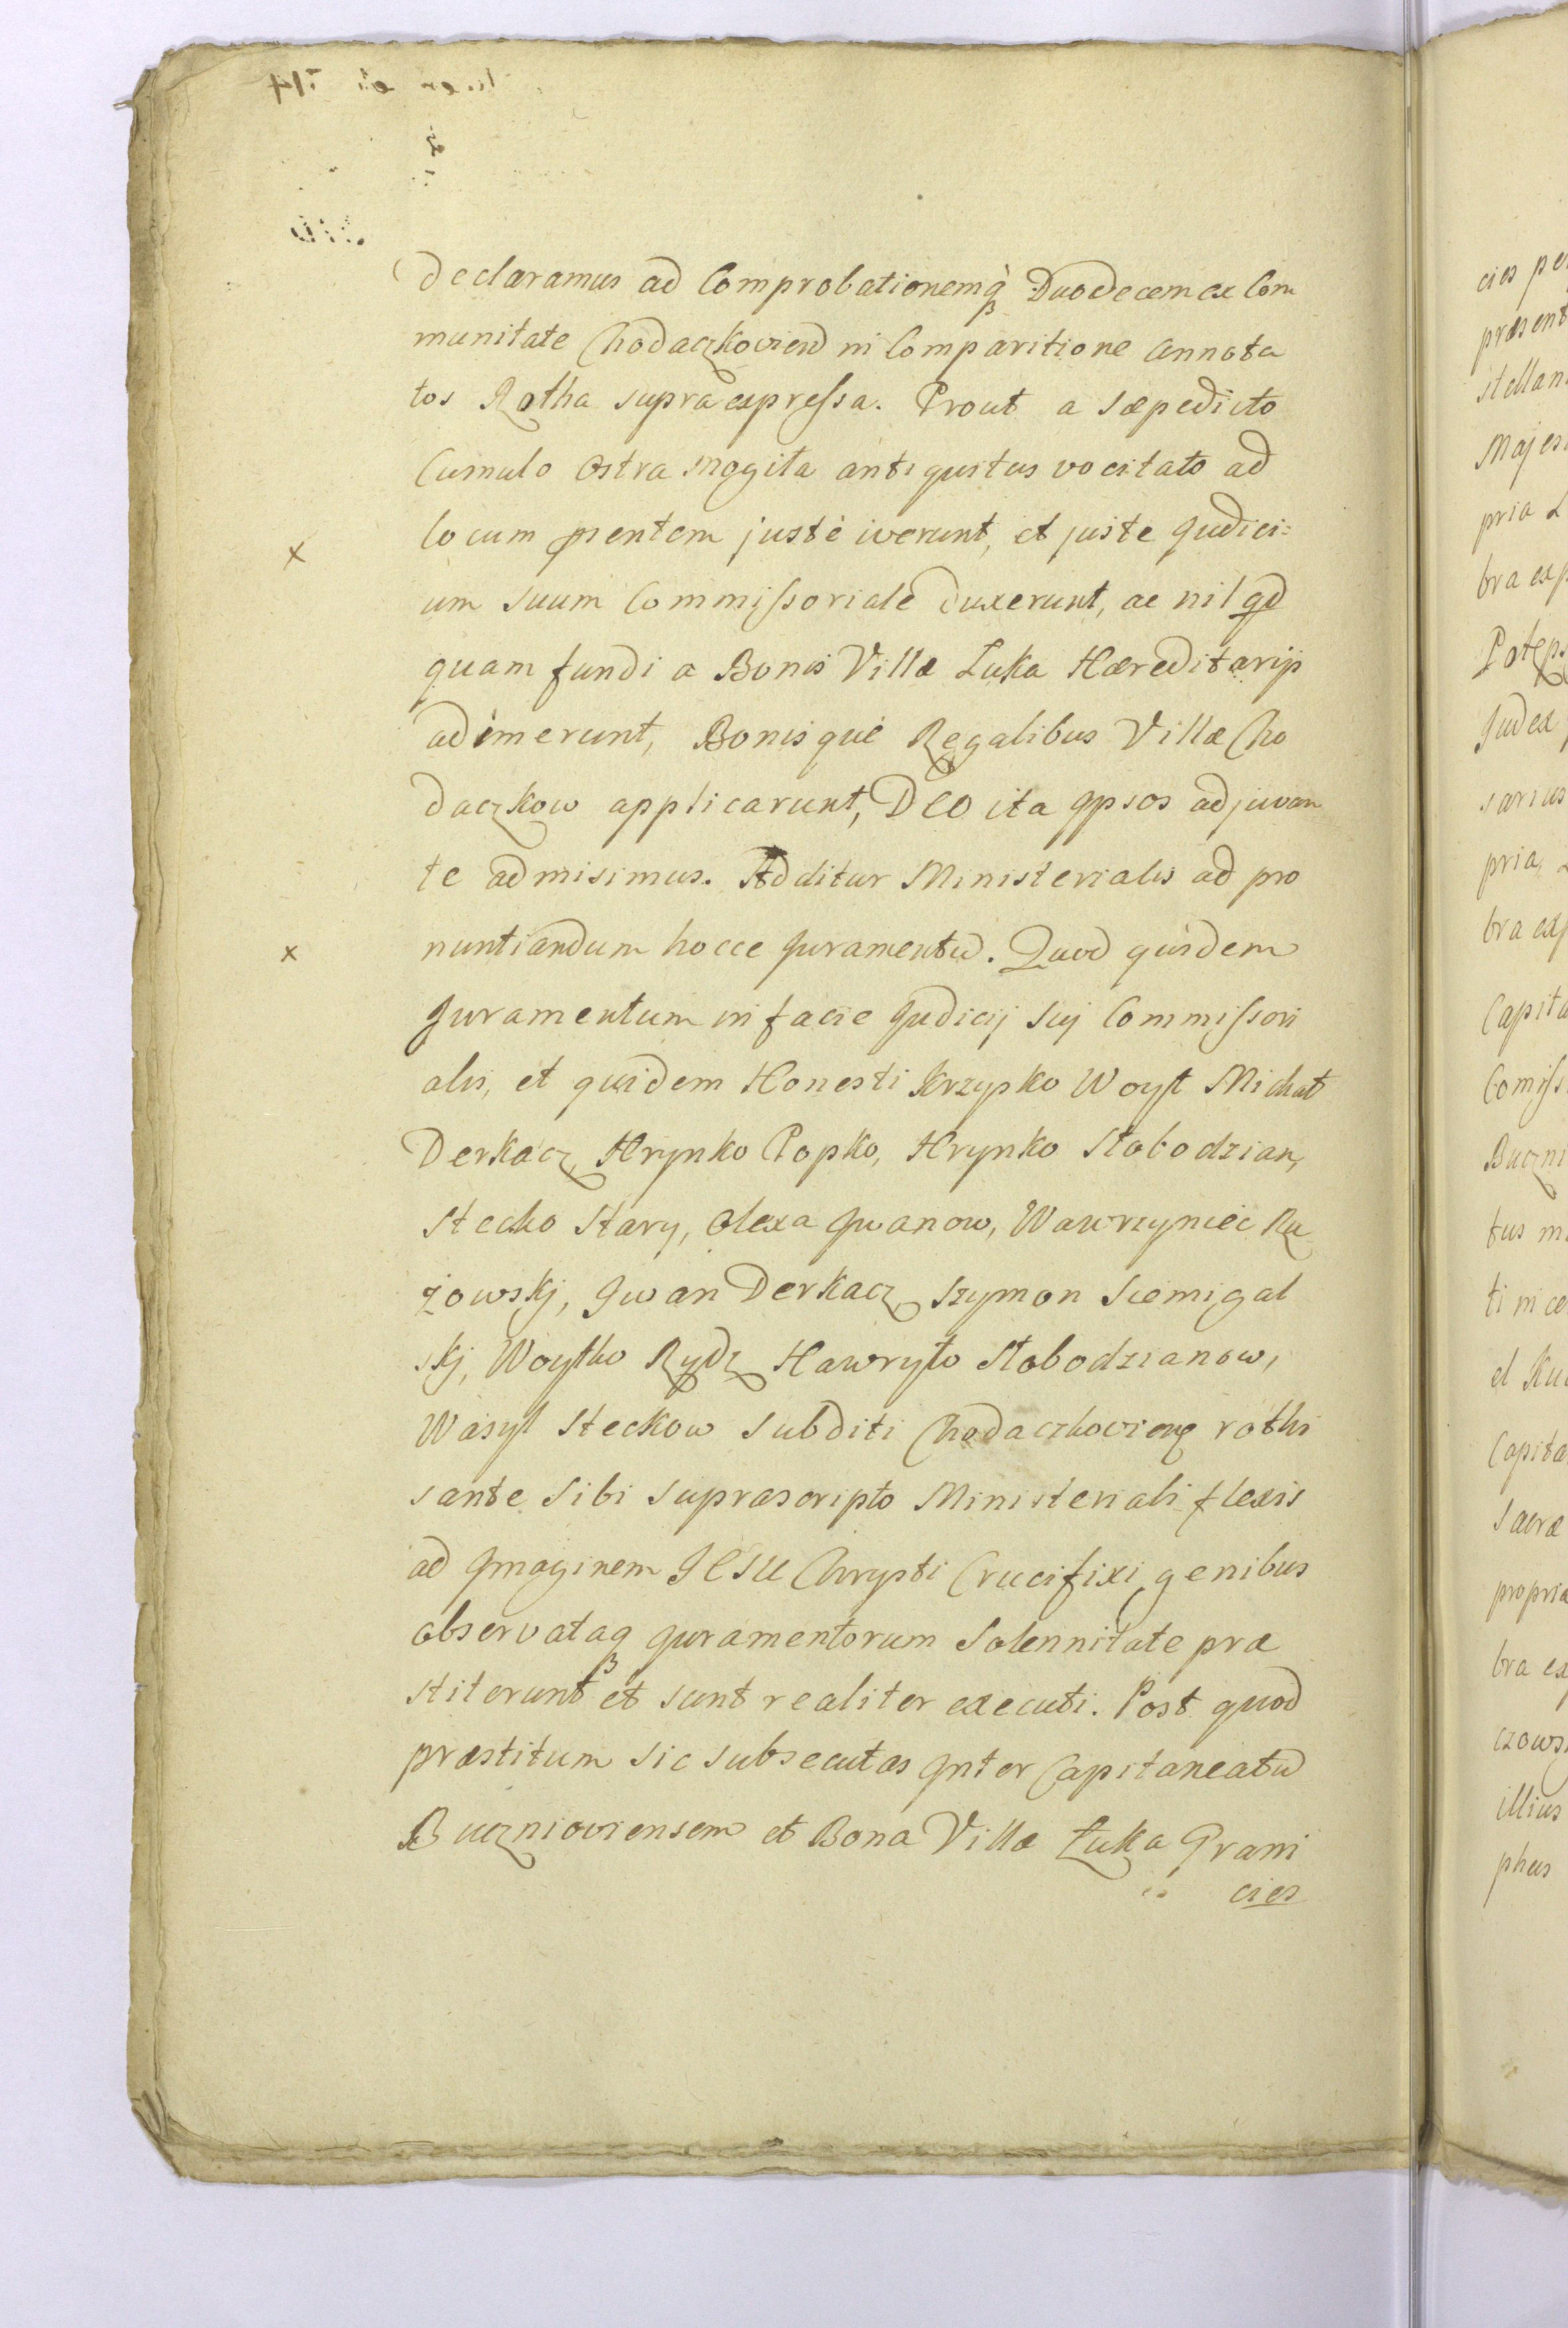 declaramus ad Comprobationemq̀ Duodecem ex Com
munitate Chodaczkovien in Comparitione annota
tos Rotha supra expressa. Prout a sæpedicto
Cumulo Ostra Mogiła antiquitus vocitato ad
locum pntem justè iverunt, et juste Judici=
um suum Commissoriale duxerunt, ac nil qd
quam fundi a Bonis Villæ Łuka Hæreditarijs
adimerunt, Bonisquè Regalibus Villæ Cho
daczkow applicarunt, DEO ita Ipsos adjuvan
te admisimus. Additur Ministerialis ad pro
nuntiandum hocce Juramentū. Quod quidem
Juramentum in facie Judicij sui Commissori
alis, et quidem Honesti Krzysko Woyt Michał
Derkacz, Hrynko Popko, Hrynko Słobodzian,
Stecko Stary, Olexa Iwanow, Wawrzyniec Ru
żowskj, Iwan Derkacz Szymon Siemigal
skj, Woytko Rydz Hawryło Słobodzianow,
Wasyl Steckow Subditi Chodaczkovien rothi
sante Sibi suprascripto Ministeriali flexis
ad Imaginem JESU Chrysti Crucifixi genibus
observataq Juramentorum Solennitate præ
stiterunt et sunt realiter executi. Post quod
præstitum sic subsecutas Inter Capitaneatū
Bucznioviensem et Bona Villæ Łuka Grani
cies
cies
præsent
stellan
Majes
pria
bra exp
Judex
sarius
pria,
bra exp
Capita
Comiss
Buczni
tus
ti in
el
Capita
Sacræ
propria
bra ex
czows
illius
pheus